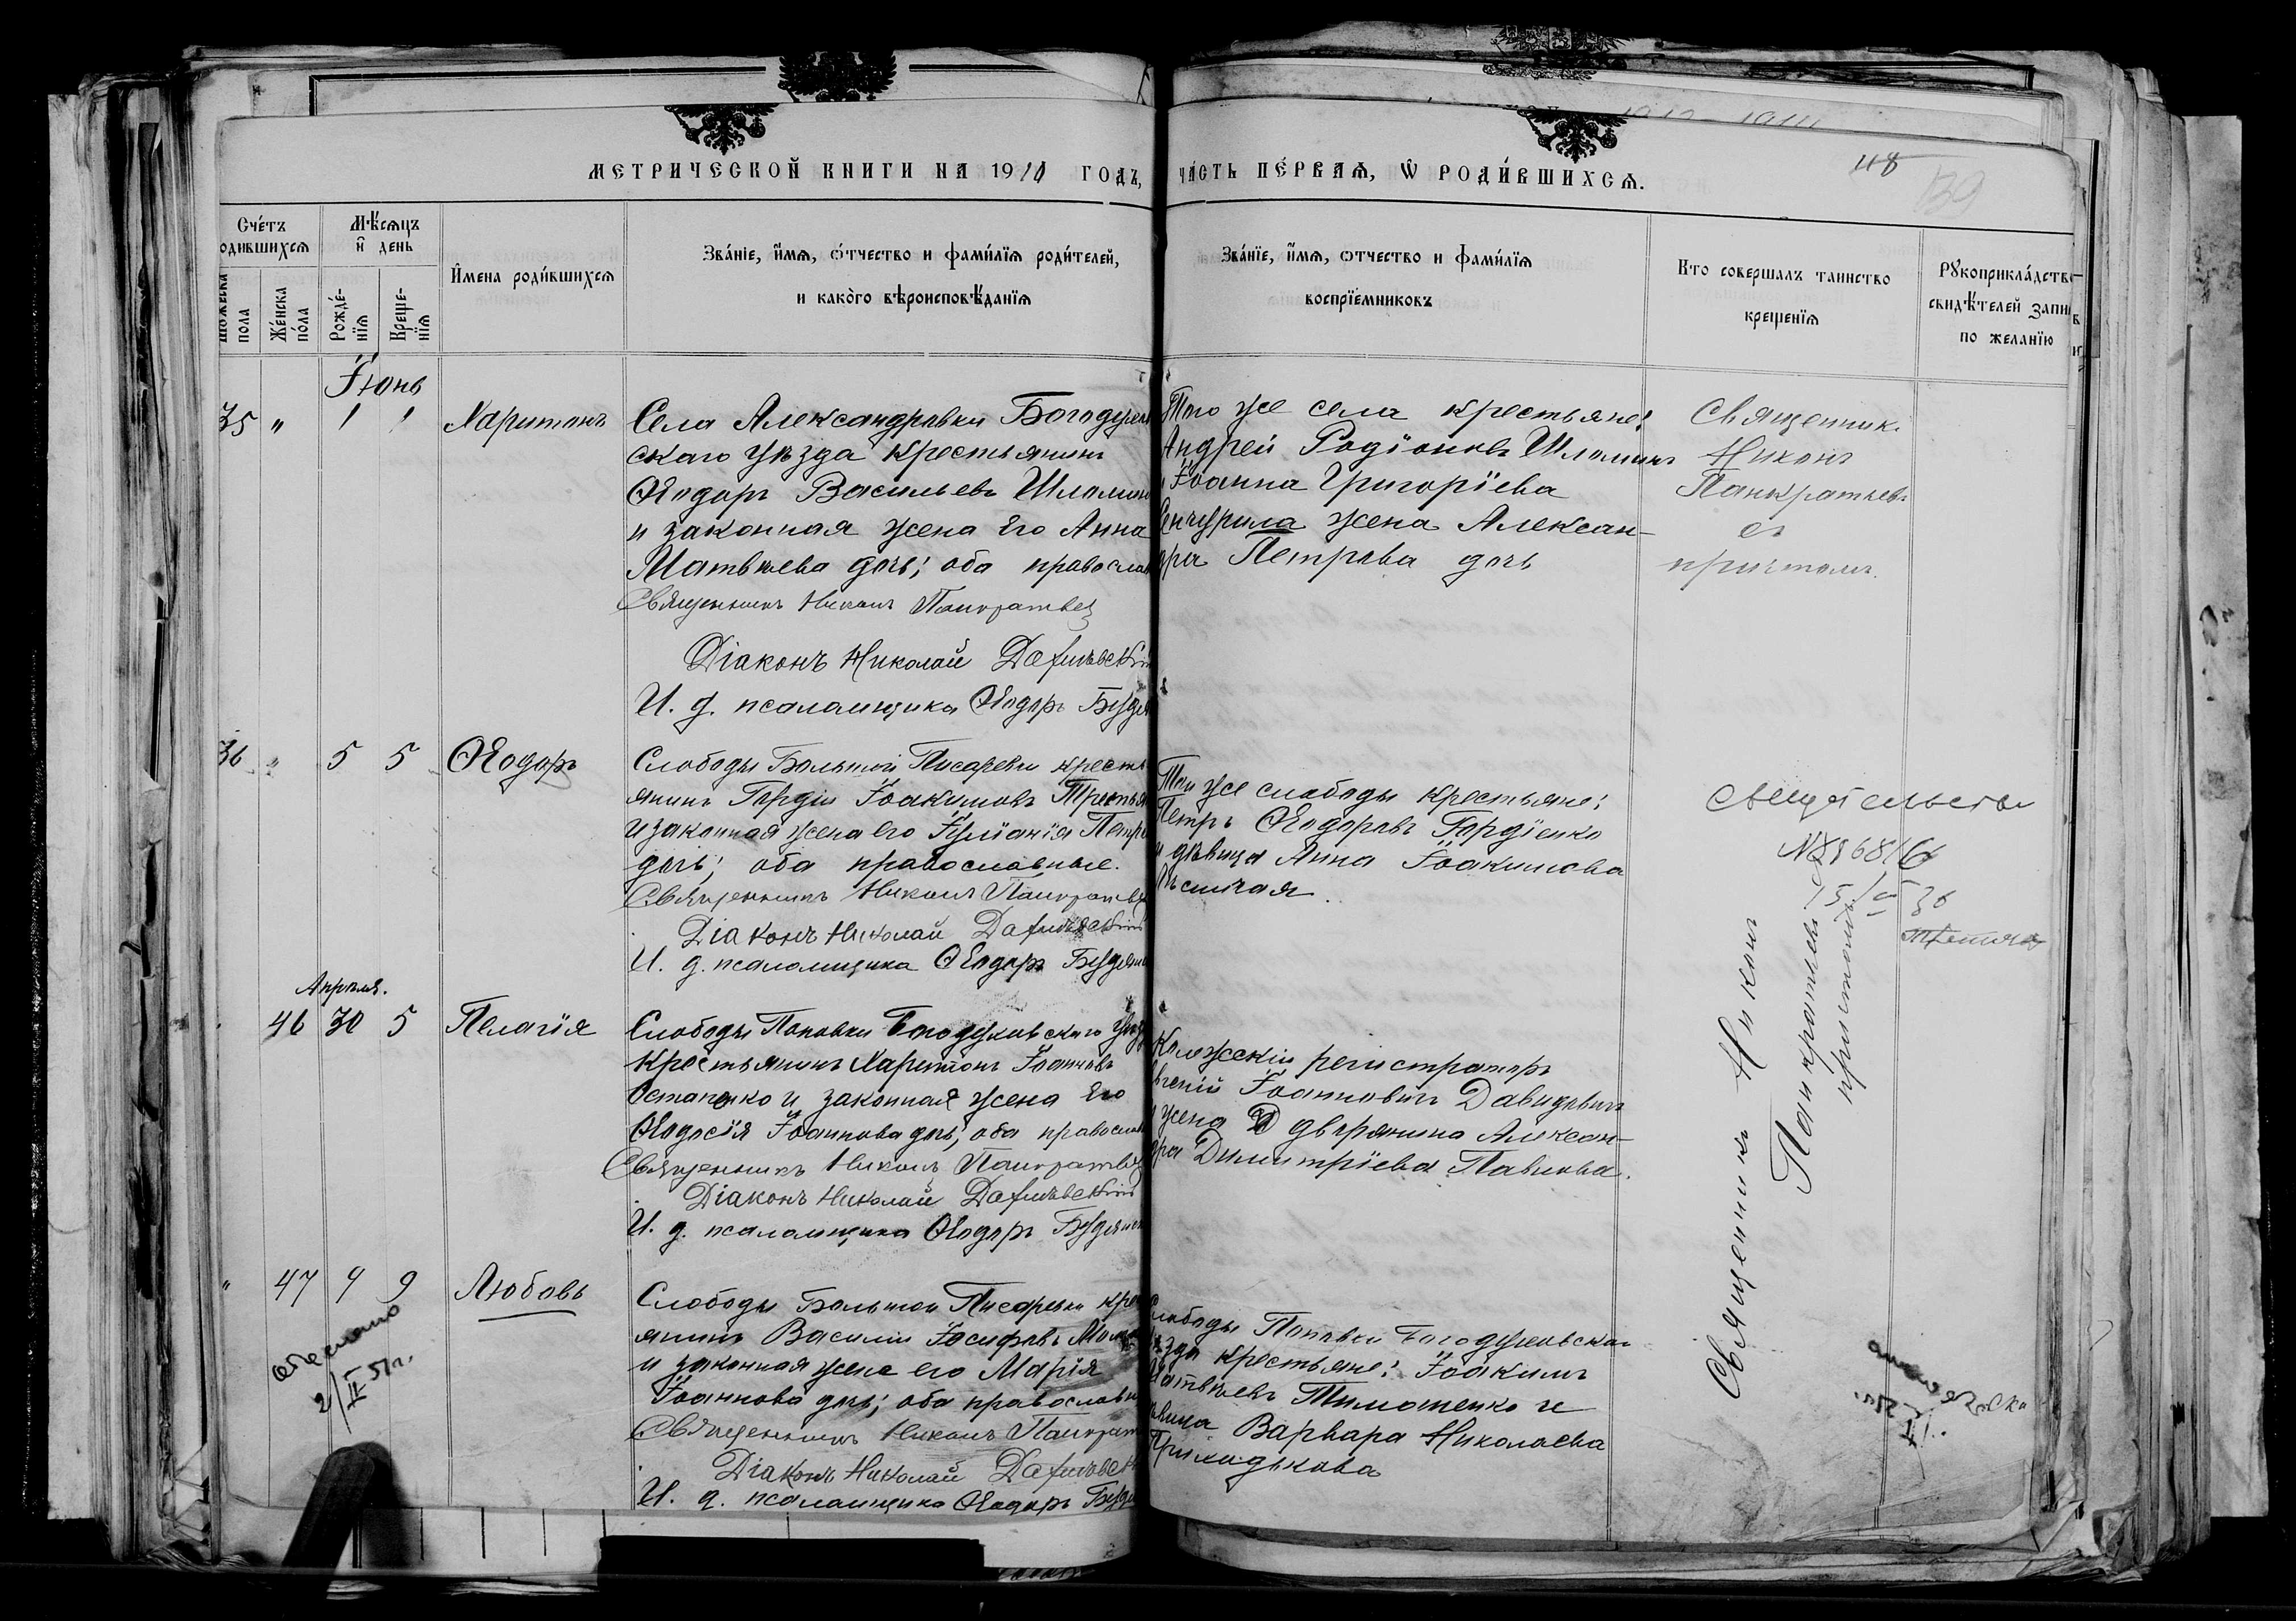 МЕТРИЧЕСКОЙ КНИГИ НА 1910 ГОДЪ,
ЧА́СТЬ ПЕ́РВАЯ, Ѿ РОДИ́ВШИХСѦ.
48
139
Сче́тъ
одившихсѧ
Мѣ́сѧцъ
и҆ день
пола
Же́нска
по́ла
Рожде́-
нїѧ
Креще-
нїѧ
И҆мена роди́вшихсѧ
Зва́нїе, и҆́мѧ, ѻ҆́тчество и фами́лїѧ роди́телей,
и како́гѡ вѣроисповѣ́данїѧ
Зва́нїе, и҆́мѧ, ѻтчество и фами́лїѧ
воспрїе́мниковъ
Кто совершалъ таинство
крещенїѧ
Рꙋкоприкла́дство
свидѣ́телей запи
по жела́нїю
Іюнь
35 " 1 1 Харитонъ
Села Александровки Богодухов
скаго уѣзда крестьянинъ
Ѳеодоръ Васильевъ Шломин
и законная жена его Анна
Матвѣева дочь; оба правосла
Священникъ Никонъ Панкратьев
Діаконъ Николай
И. д. псаломщика Ѳеодоръ
Того же села крестьяне:
Андрей Родіоновъ Шломинъ
и Іоанна Григоріева
жена Алексан-
дра Петрова дочь
Священник
Никонъ
Панкратьевъ
съ
причтомъ.
36 " 5 5 Ѳеодоръ
Слободы Большой Писаревки кресть
янинъ Гордій Іоакимовъ
и законная жена его Іуліанія Петро
дочь; оба православные.
Священникъ Никонъ Панкратьев
Діаконъ Николай
И. д. псаломщика Ѳеодоръ
Той же слободы крестьяне:
Петръ Ѳеодоровъ Гордіенко
и дѣвица Анна Іоакимова
Апрѣля.
46 30 5 Пелагія
Слободы Поповки Богодуховскаго уѣзд
крестьянинъ Харитонъ Іоанновъ
Остапенко и законная жена его
Ѳеодосія Іоаннова дочь; оба правосла
Священникъ Никонъ Панкратьев
Діаконъ Николай
И. д. псаломщика Ѳеодоръ
Колежскій регистраторъ
Евгеній Іоанновичъ Давидович
и жена дворянина Алексан-
дра Димитріева Павлова.
" 47 9 9 Любовь
Слободы Большой Писаревки кре
янинъ Василій Іосифовъ
и законная жена его Марія
Іоаннова дочь; оба православн
Священникъ Никонъ Панкрат
Діаконъ Николай
И. д. псаломщика Ѳеодоръ
Слободы Поповки Богодуховска
уѣзда крестьяне: Іоакимъ
Матвѣевъ Тимошенко и
дѣвица Варвара Николаева
Приходькова
Священникъ Никонъ
Панкратьевъ
причтомъ
2/II 51 г.